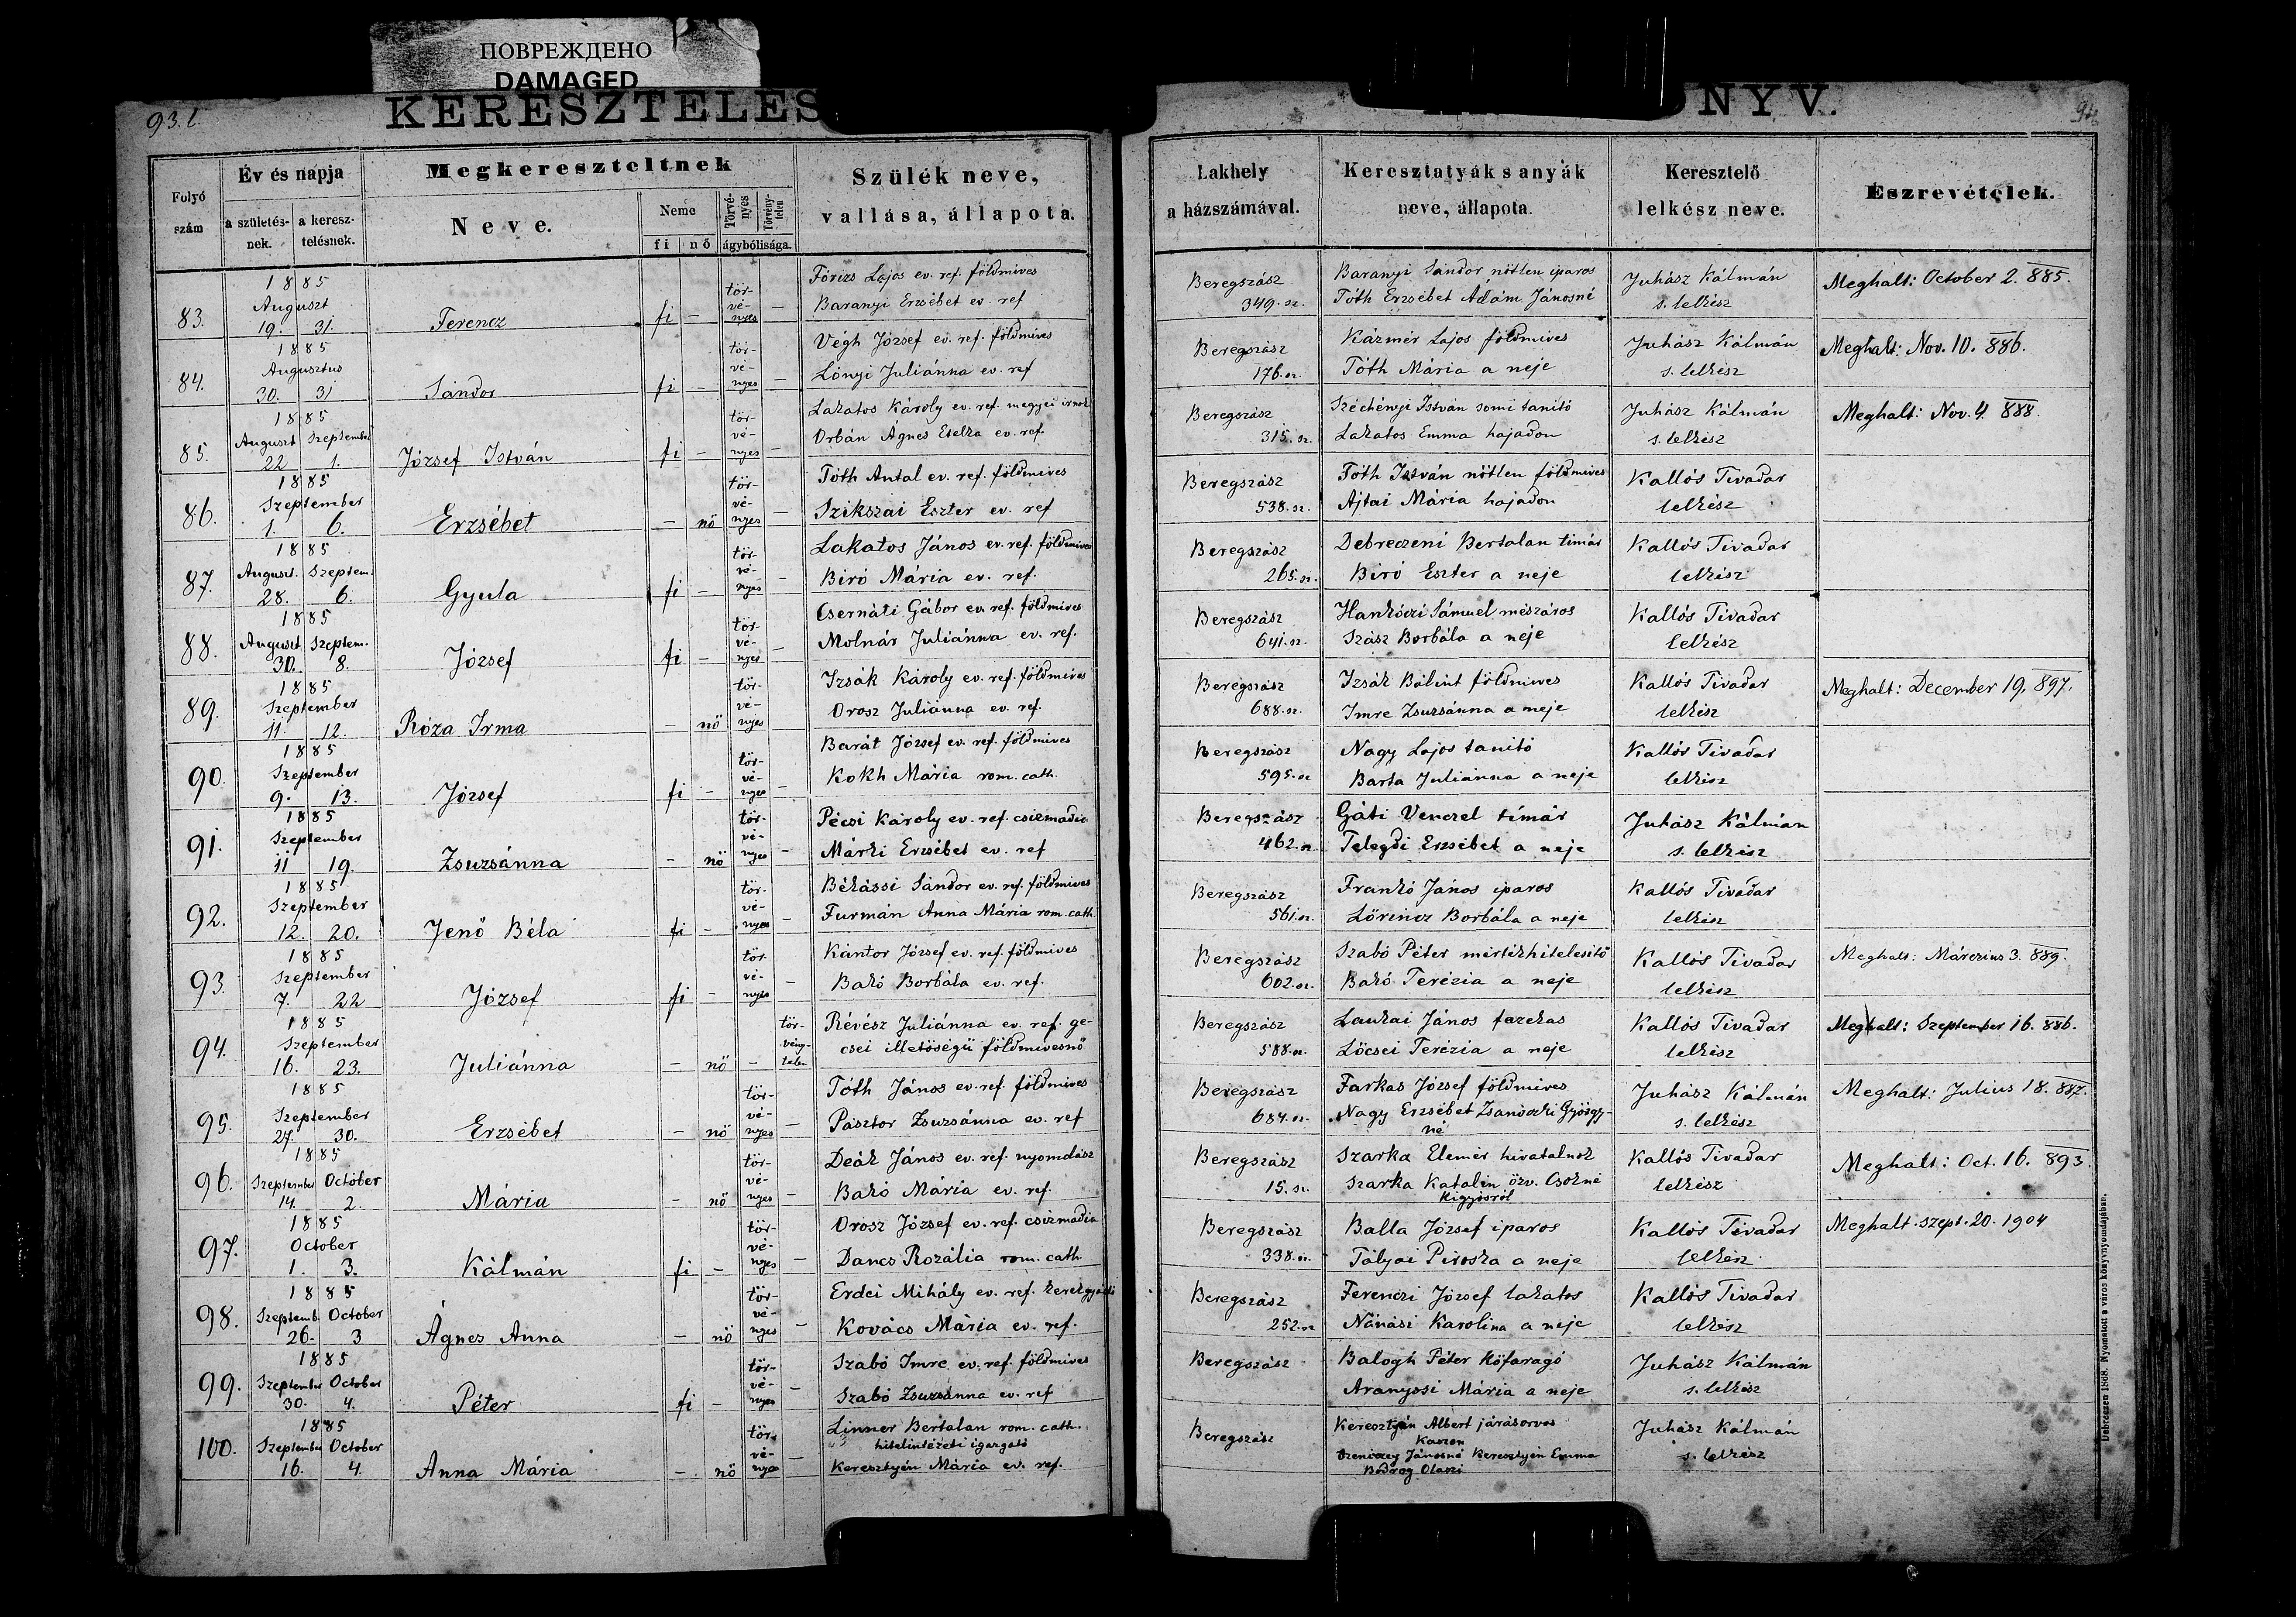 ПОВРЕЖДЕНО
DAMAGED
93. l.
KERESZTELES
NYV.
94
Folyó szám
Év és napja
a születés-nek.
a keresz-telésnek.
Megkereszteltnek
Neve.
Neme
fi
nő
Törvé-nyes
Törvény-telen
ágybólisága.
Szülék neve,
vallása, állapota.
Lakhely
a házszámával.
Keresztatyák s anyák
neve, állapota.
Keresztelő
lelkész neve.
Észrevételek.
83. 1885 Auguszt 19. 31. Ferencz fi – tör-vé-nyes –
Fórizs Lajos ev. ref. földmives
Baranyi Erzsébet ev. ref
Beregszász 349. sz.
Baranyi Sándor nőtlen iparos
Tóth Erzsébet Ádám Jánosné
Juhász Kálmán s. lelkész
Meghalt: October 2. 885.
84. 1885 Augusztus 30. 31 Sándor fi – tör-vé-nyes –
Végh József ev. ref. földmives
Lónyi Juliánna ev. ref
Beregszász 176. sz.
Kázmér Lajos földmives
Tóth Mária a neje
Juhász Kálmán s. lelkész
Meghalt: Nov. 10. 886.
85. 1885 Auguszt 22 Szeptember 1. József István fi – tör-vé-nyes –
Lakatos Károly ev. ref. megyei irnok
Orbán Ágnes Etelka ev. ref.
Beregszász 315. sz.
Széchényi István somi tanitó
Lakatos Emma hajadon
Juhász Kálmán s. lelkész
Meghalt: Nov. 4. 888.
86. 1885 Szeptember 1. 6. Erzsébet – nő tör-vé-nyes –
Tóth Antal ev. ref. földmives
Szikszai Eszter ev. ref
Beregszász 538. sz.
Tóth István nőtlen földmives
Ajtai Mária hajadon
Kallós Tivadar lelkész
87. 1885 Auguszt. 28. Szeptem. 6. Gyula fi – tör-vé-nyes –
Lakatos János ev. ref. földmives
Biró Mária ev. ref.
Beregszász 265. sz.
Debreczeni Bertalan timár
Biró Eszter a neje
Kallós Tivadar lelkész
88. 1885 Auguszt 30. Szeptem. 8. József fi – tör-vé-nyes –
Csernáti Gábor ev. ref. földmives
Molnár Juliánna ev. ref.
Beregszász 641. sz.
Hankóczi Sámuel mészáros
Szász Borbála a neje
Kallós Tivadar lelkész
89. 1885 Szeptember 11. 12. Róza Irma – nő tör-vé-nyes
Izsák Károly ev. ref. földmives
Orosz Juliánna ev. ref.
Beregszász 688. sz.
Izsák Bálint földmives
Imre Zsuzsánna a neje
Kallós Tivadar lelkész
Meghalt: December 19. 897.
90. 1885 Szeptember 9. 13. József fi – tör-vé-nyes –
Barát József ev. ref. földmives
Kokh Mária rom. cath.
Beregszász 595. sz
Nagy Lajos tanitó
Barta Juliánna a neje
Kallós Tivadar lelkész
91. 1885 Szeptember 11 19. Zsuzsánna – nő tör-vé-nyes –
Pécsi Károly ev. ref. csizmadia
Márki Erzsébet ev. ref
Beregszász 462. sz
Gáti Venczel tímár
Telegdi Erzsébet a neje
Juhász Kálmán s. lelkész
92. 1885 Szeptember 12. 20. Jenő Béla fi – tör-vé-nyes –
Békássi Sándor ev. ref. földmives
Furmán Anna Mária rom. cath.
Beregszász 561. sz.
Frankó János iparos
Lőrincz Borbála a neje
Kallós Tivadar lelkész
93. 1885 Szeptember 7. 22 József fi – tör-vé-nyes –
Kántor József ev. ref. földmives
Bakó Borbála ev. ref.
Beregszász 602. sz.
Szabó Péter mértékhitelesitő
Bakó Terézia a neje
Kallós Tivadar lelkész
Meghalt: Márczius 3. 889.
94. 1885 Szeptember 16. 23. Juliánna – nő – tör-vény-telen
Révész Juliánna ev. ref. ge-
csei illetőségű földmivesnő
Beregszász 588. sz.
Laukai János fazekas
Lőcsei Terézia a neje
Kallós Tivadar lelkész
Meghalt: Szeptember 16. 886.
95. 1885 Szeptember 27. 30. Erzsébet – nő tör-vé-nyes –
Tóth János ev. ref. földmives
Pásztor Zsuzsánna ev. ref
Beregszász 684. sz.
Farkas József földmives
Nagy Erzsébet Györgyné
Juhász Kálmán s. lelkész
Meghalt: Julius 18. 887.
96. 1885 Szeptember 14. October 2. Mária – nő tör-vé-nyes –
Deák János ev. ref. nyomdász
Bakó Mária ev. ref.
Beregszász 15. sz.
Szarka Elemér hivatalnok
Szarka Katalin özv. Csokné
Kigyósról
Kallós Tivadar lelkész
Meghalt: Oct. 16. 893.
97. 1885 October 1. 3. Kálmán fi – tör-vé-nyes –
Orosz József ev. ref. csizmadia
Dancs Rozália rom. cath.
Beregszász 338. sz.
Balla József iparos
Tályai Piroska a neje
Kallós Tivadar lelkész
Meghalt. szept. 20. 1904
98. 1885 Szeptemb. 26. October 3 Ágnes Anna – nő tör-vé-nyes –
Erdei Mihály ev. ref. kerékgyártó
Kovács Mária ev. ref.
Beregszász 252. sz
Ferenczi József lakatos
Nánási Karolina a neje
Kallós Tivadar lelkész
99. 1885 Szeptember 30. October 4. Péter fi – tör-vé-nyes –
Szabó Imre ev. ref. földmives
Szabó Zsuzsánna ev. ref
Beregszász
Balogh Péter kőfaragó
Aranyosi Mária a neje
Juhász Kálmán s. lelkész
100. 1885 Szeptember 16. October 4. Anna Mária – nő tör-vé-nyes –
Linner Bertalan rom. cath.
hitelintézeti igazgató
Keresztyén Mária ev. ref.
Beregszász
Keresztyén Albert járásorvos
Kaszon
Jánosné Keresztyén Emma
Bodrog Olaszi
Juhász Kálmán s. lelkész
Debreczen 1868. Nyomatott a város könyvnyomdájában.